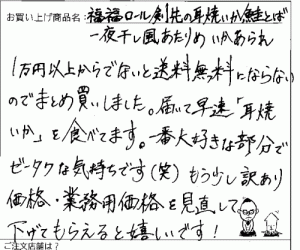 お買い上げ商品名：福福ロール剣先の耳焼いか鮭とば
一夜干し風あたりめ いかあられ
1万円以上からでないと送料無料にならない
のでまとめ買いしました。届いて早速「耳焼
いか」を食べてます。一番大好きな部分で
ゼータクな気持ちです(笑) もう少し訳あり
価格・業務用価格を見直して
下げてもらえると嬉しいです！
ご注文店舗は？